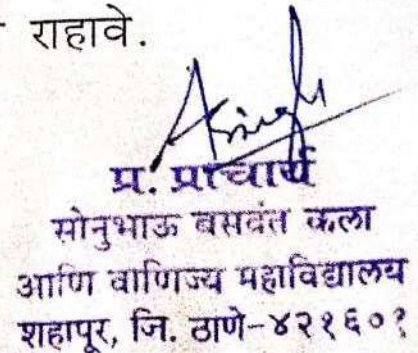 राहावे.
प्र. प्राचार्य
सोनुभाऊ बसवंत कला
आणि वाणिज्य महाविद्यालय
शहापूर, जि. ठाणे-४२१६०१